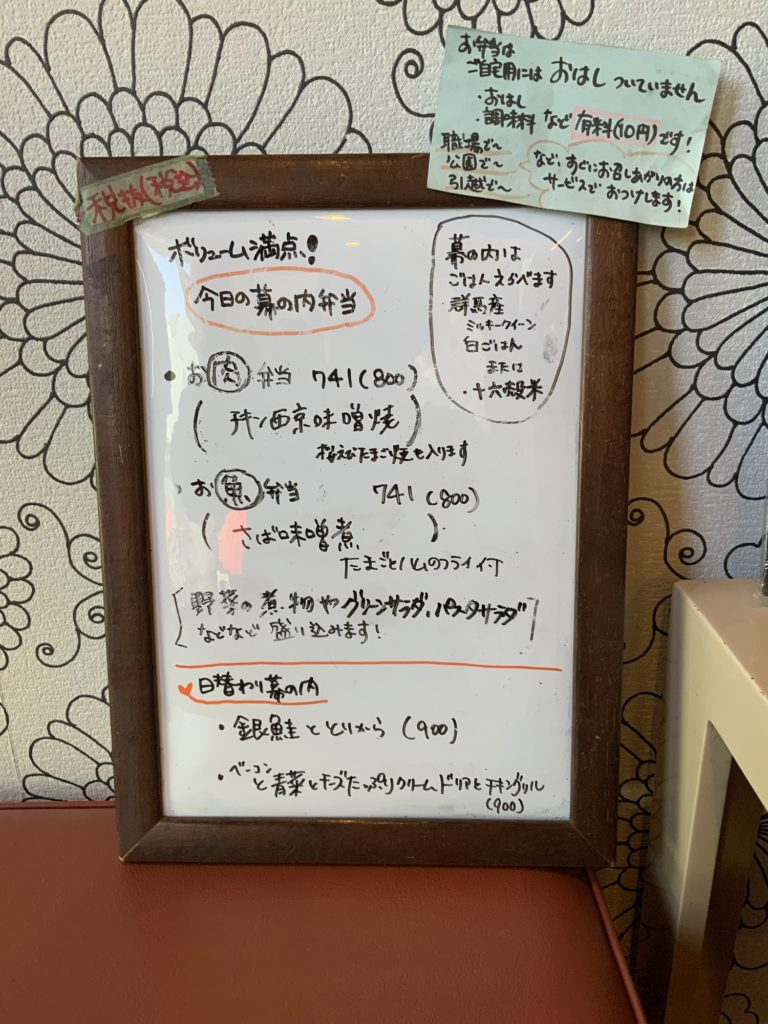 お弁当は
ご自宅用には おはし ついていません
・おはし
・調味料 など 有料(10円)です!
職場で〜
公園で〜
引越で〜
など、すぐにお召しあがりの方は
サービスで おつけします!
税抜(税込)
ボリューム満点!
今日の幕の内弁当
幕の内は
ごはんえらべます
群馬産
ミルキークイーン
白ごはん
または
・十六穀米
・お肉弁当 741(800)
(チキン西京味噌焼)
桜えびたまご焼も入ります
・お魚弁当 741(800)
(さば味噌煮)
たまごとハムのフライ付
[野菜の煮物やグリーンサラダ、パスタサラダ
などなど 盛り込みます!]
日替わり幕の内
・銀鮭ととりから (900)
・ベーコンと青菜とチーズたっぷりクリームドリアとチキングリル
(900)